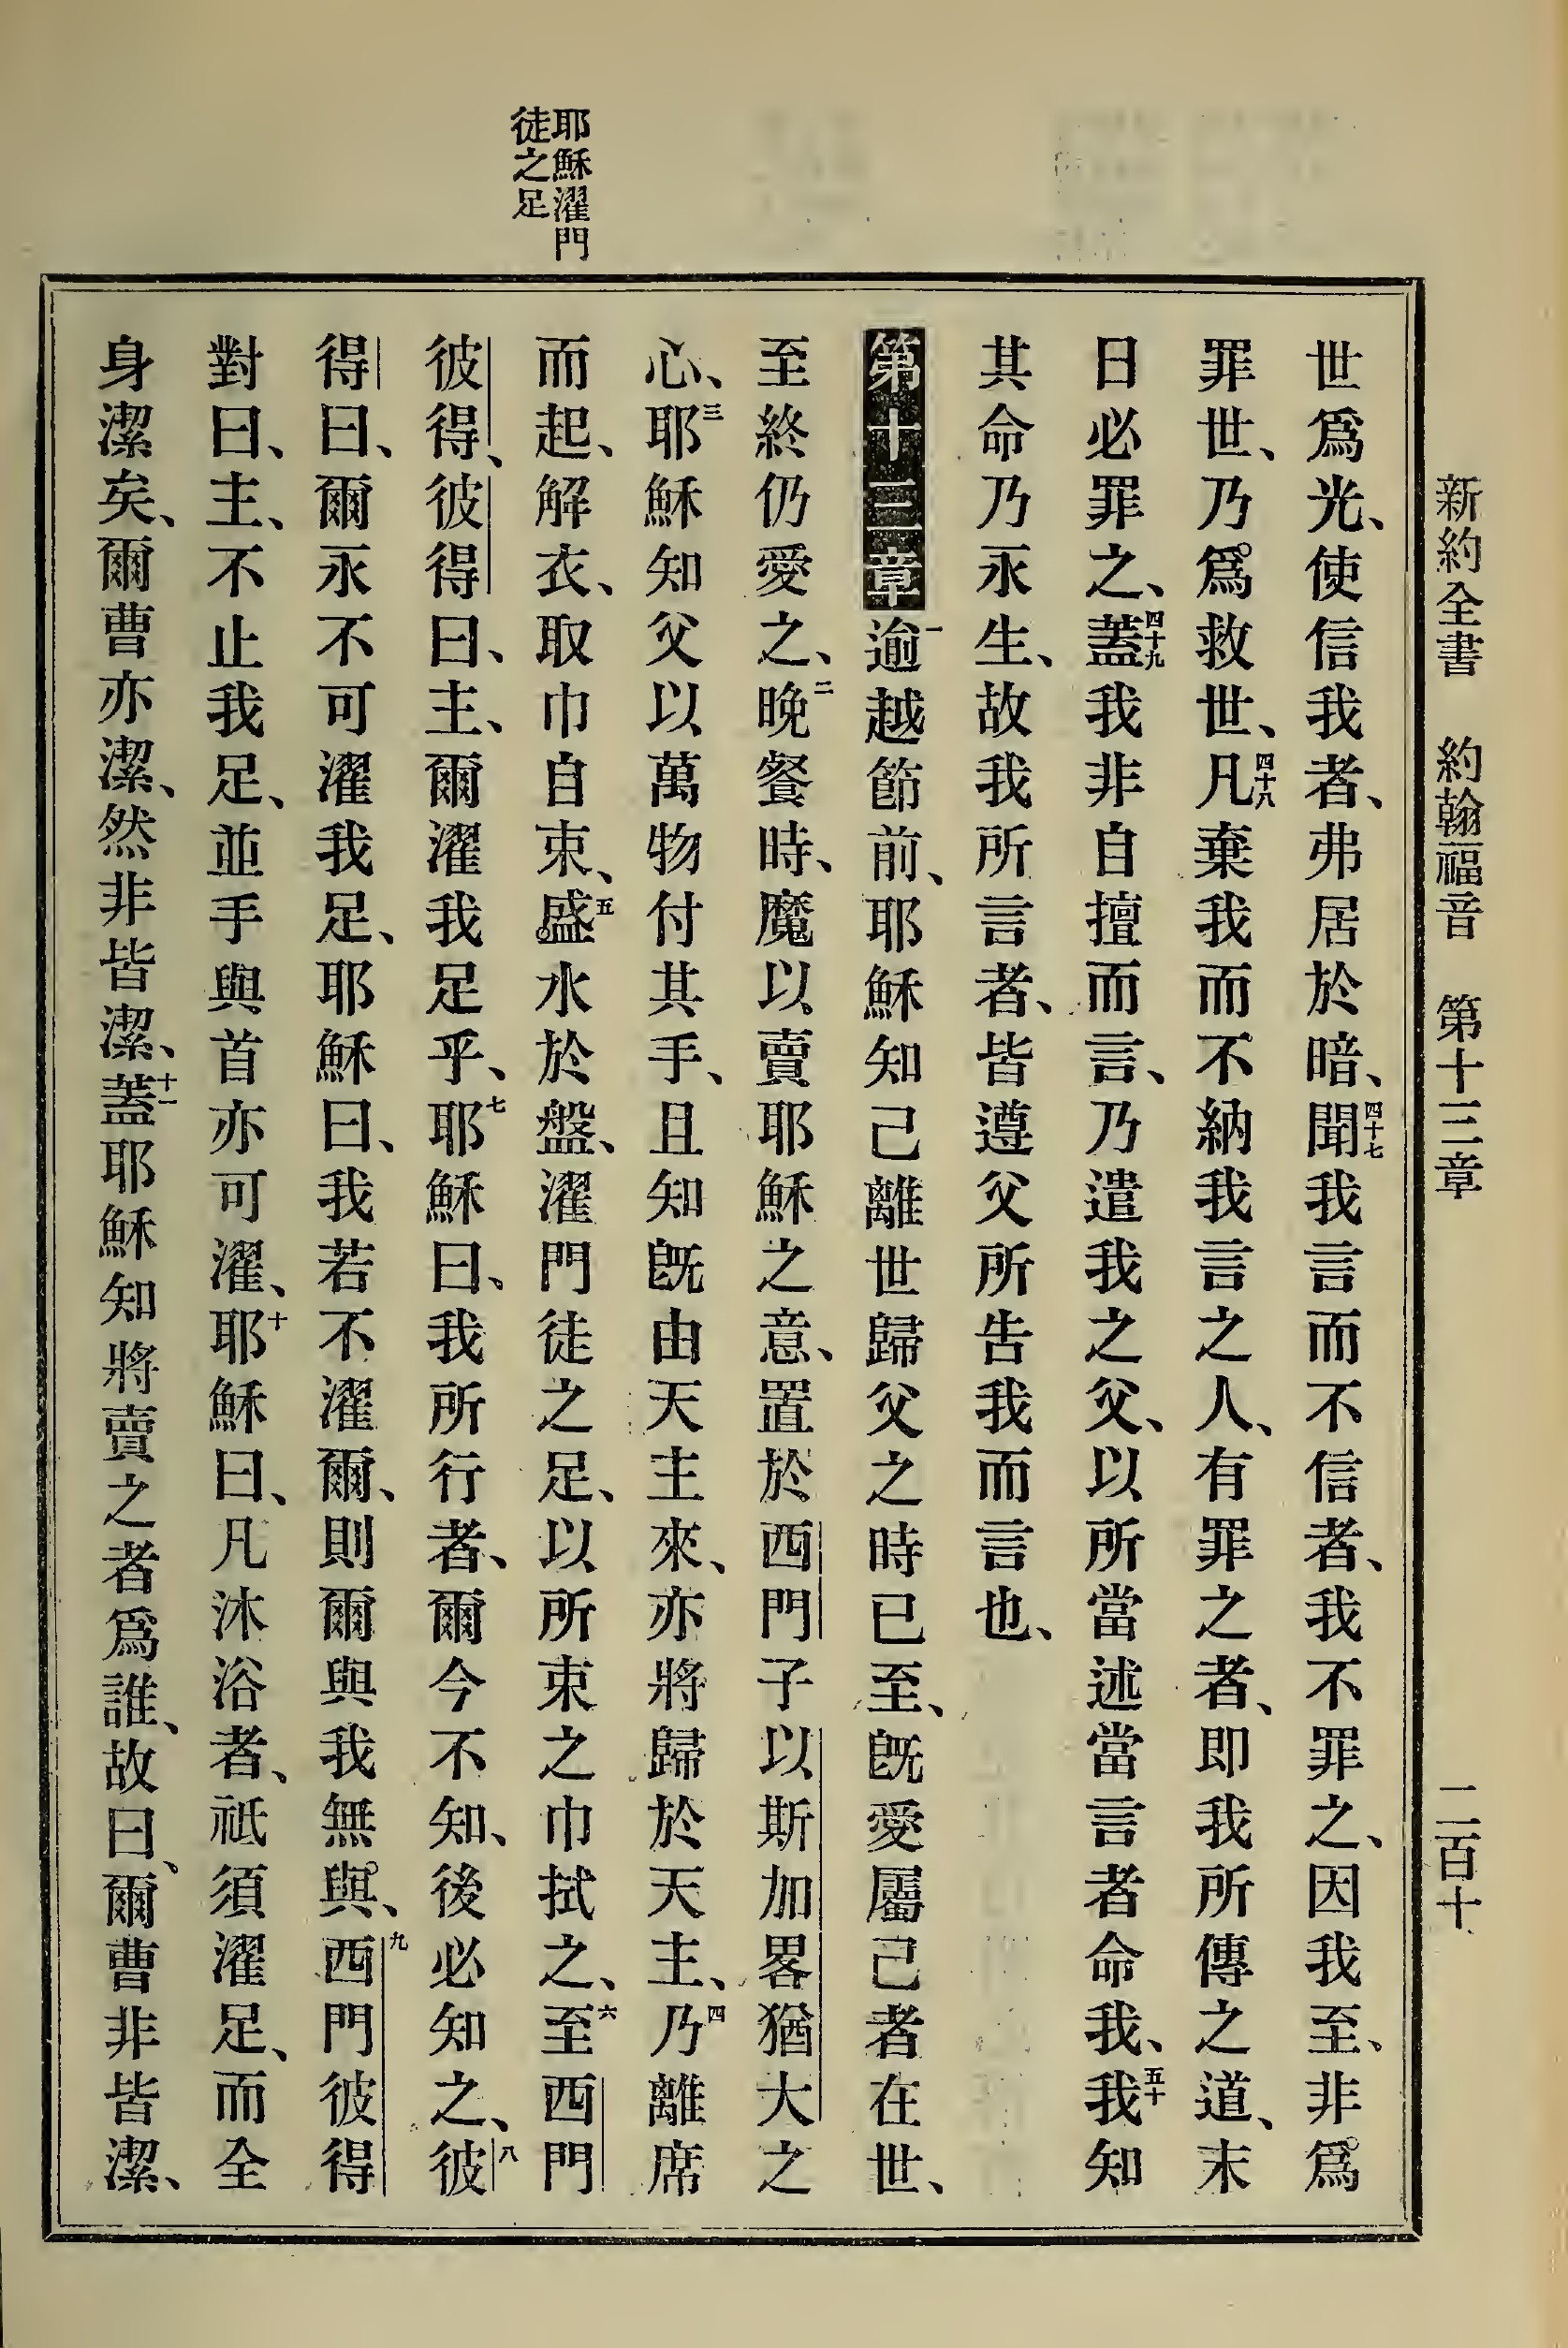 新約全書 約翰福音 第十三章 二百十
世爲光、使信我者、弗居於暗、四十七聞我言而不信者、我不罪之、因我至、非爲
罪世、乃爲救世、四十八凡棄我而不納我言之人、有罪之者、即我所傳之道、末
日必罪之、四十九蓋我非自擅而言、乃遣我之父、以所當述當言者命我、五十我知
其命乃永生、故我所言者、皆遵父所告我而言也、
第十三章一逾越節前、耶穌知己離世歸父之時已至、旣愛屬己者在世、
至終仍愛之、二晚餐時、魔以賣耶穌之意、置於西門子以斯加畧猶大之
心、三耶穌知父以萬物付其手、且知旣由天主來、亦將歸於天主、四乃離席
耶穌濯門
徒之足
而起、解衣、取巾自束、五盛水於盤、濯門徒之足、以所束之巾拭之、六至西門
彼得、彼得曰、主、爾濯我足乎、七耶穌曰、我所行者、爾今不知、後必知之、八彼
得曰、爾永不可濯我足、耶穌曰、我若不濯爾、則爾與我無與、九西門彼得
對曰、主、不止我足、並手與首亦可濯、十耶穌曰、凡沐浴者、祇須濯足、而全
身潔矣、爾曹亦潔、然非皆潔、十一蓋耶穌知將賣之者爲誰、故曰、爾曹非皆潔、